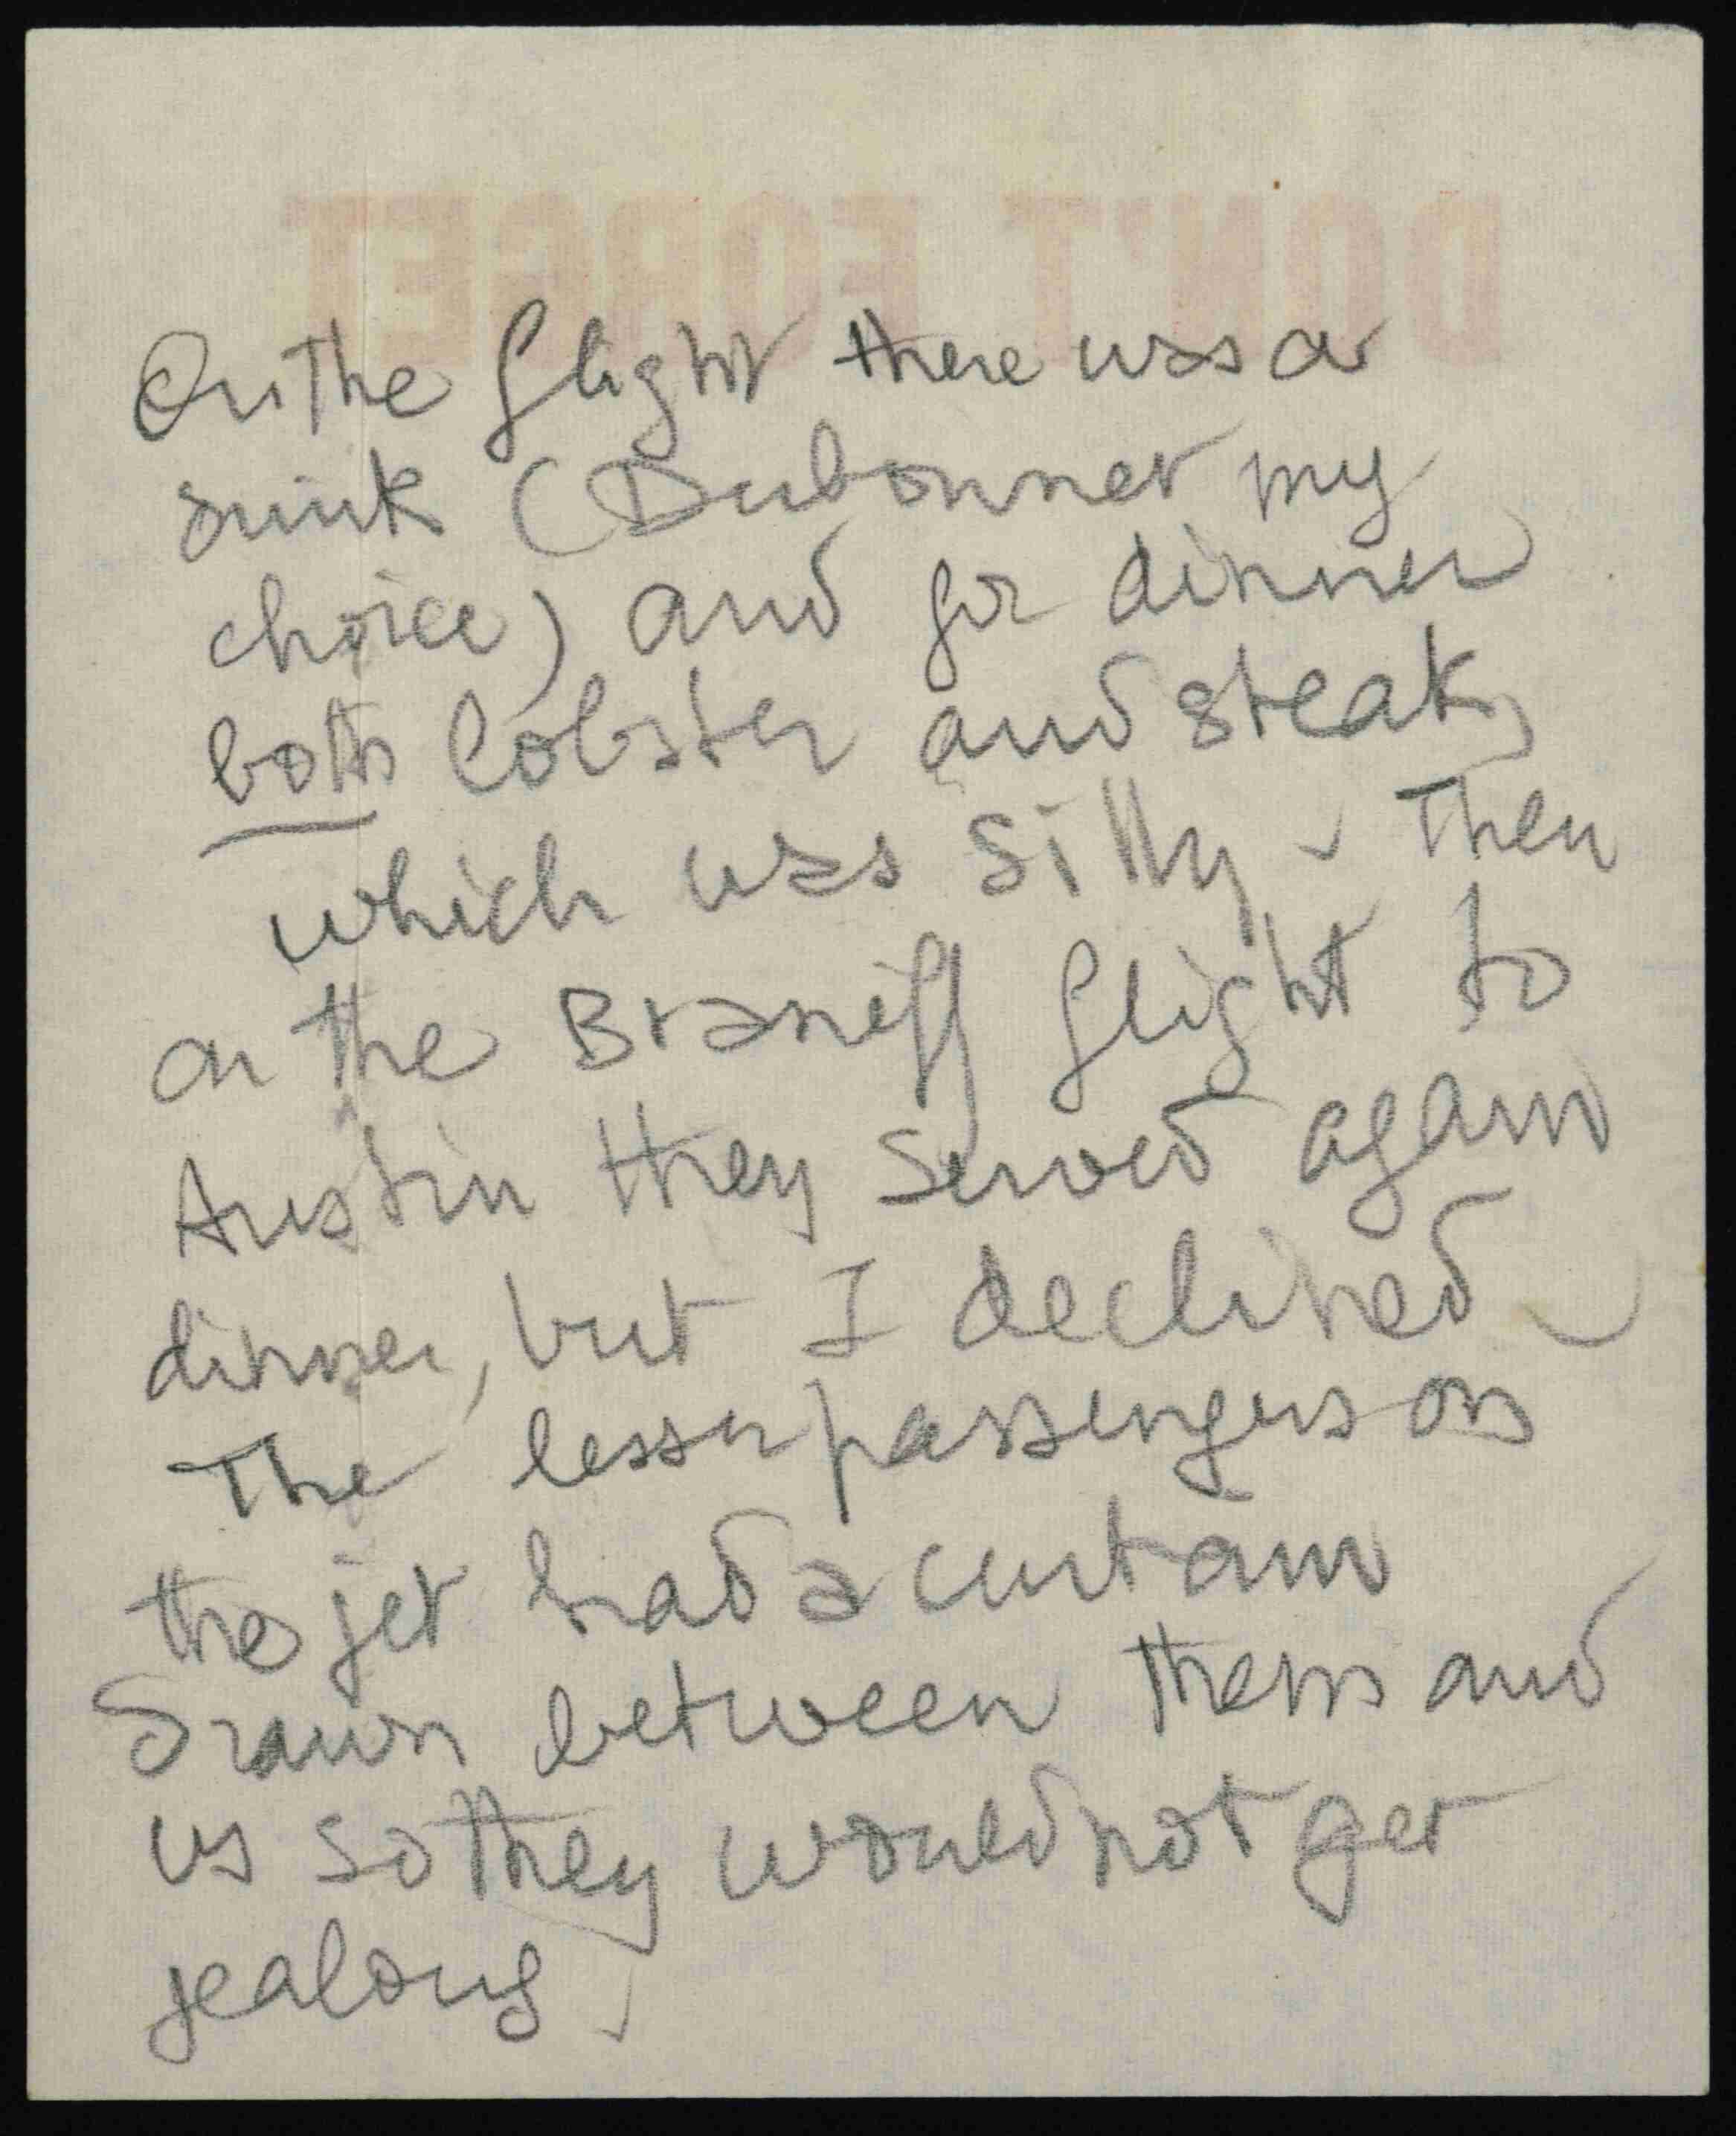 DON'T FORGET
On the flight there was a
drink (Dubonnet my
choice) and for dinner
both lobster and steak,
which was silly. Then
on the Braniff flight to
Austin they served again
dinner, but I declined.
The lesser passengers on
the jet had a curtain
drawn between them and
us so they would not get
jealous.